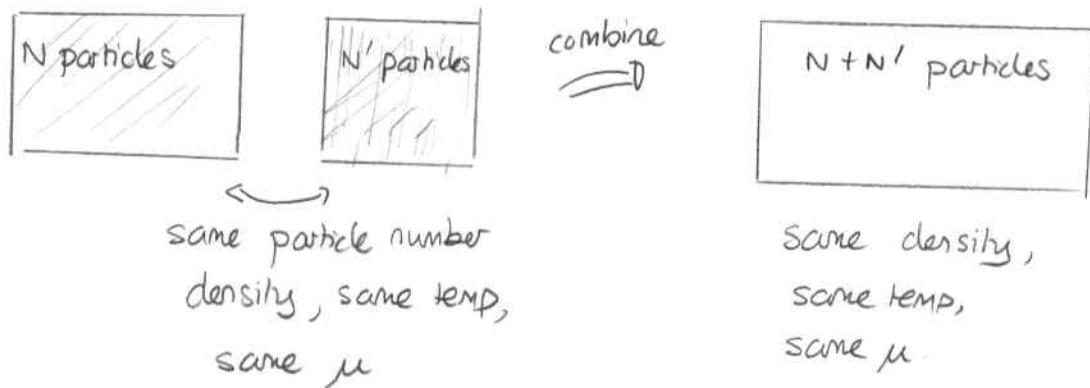 N particles
N' particles
combine
N + N' particles
same particle number
density, same temp,
same μ
same density,
same temp,
same μ.